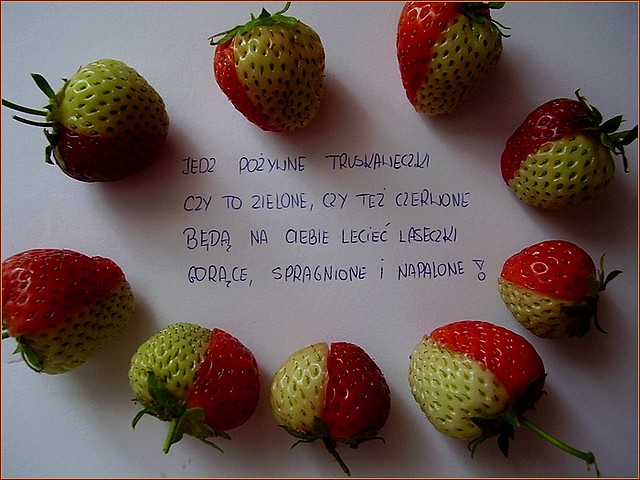 JEDZ POŻYWNE TRUSKAWECZKI
CZY TO ZIELONE, CZY TEŻ CZERWONE
BĘDĄ NA CIEBIE LECIEĆ LASECZKI
GORĄCE, SPRAGNIONE I NAPALONE!